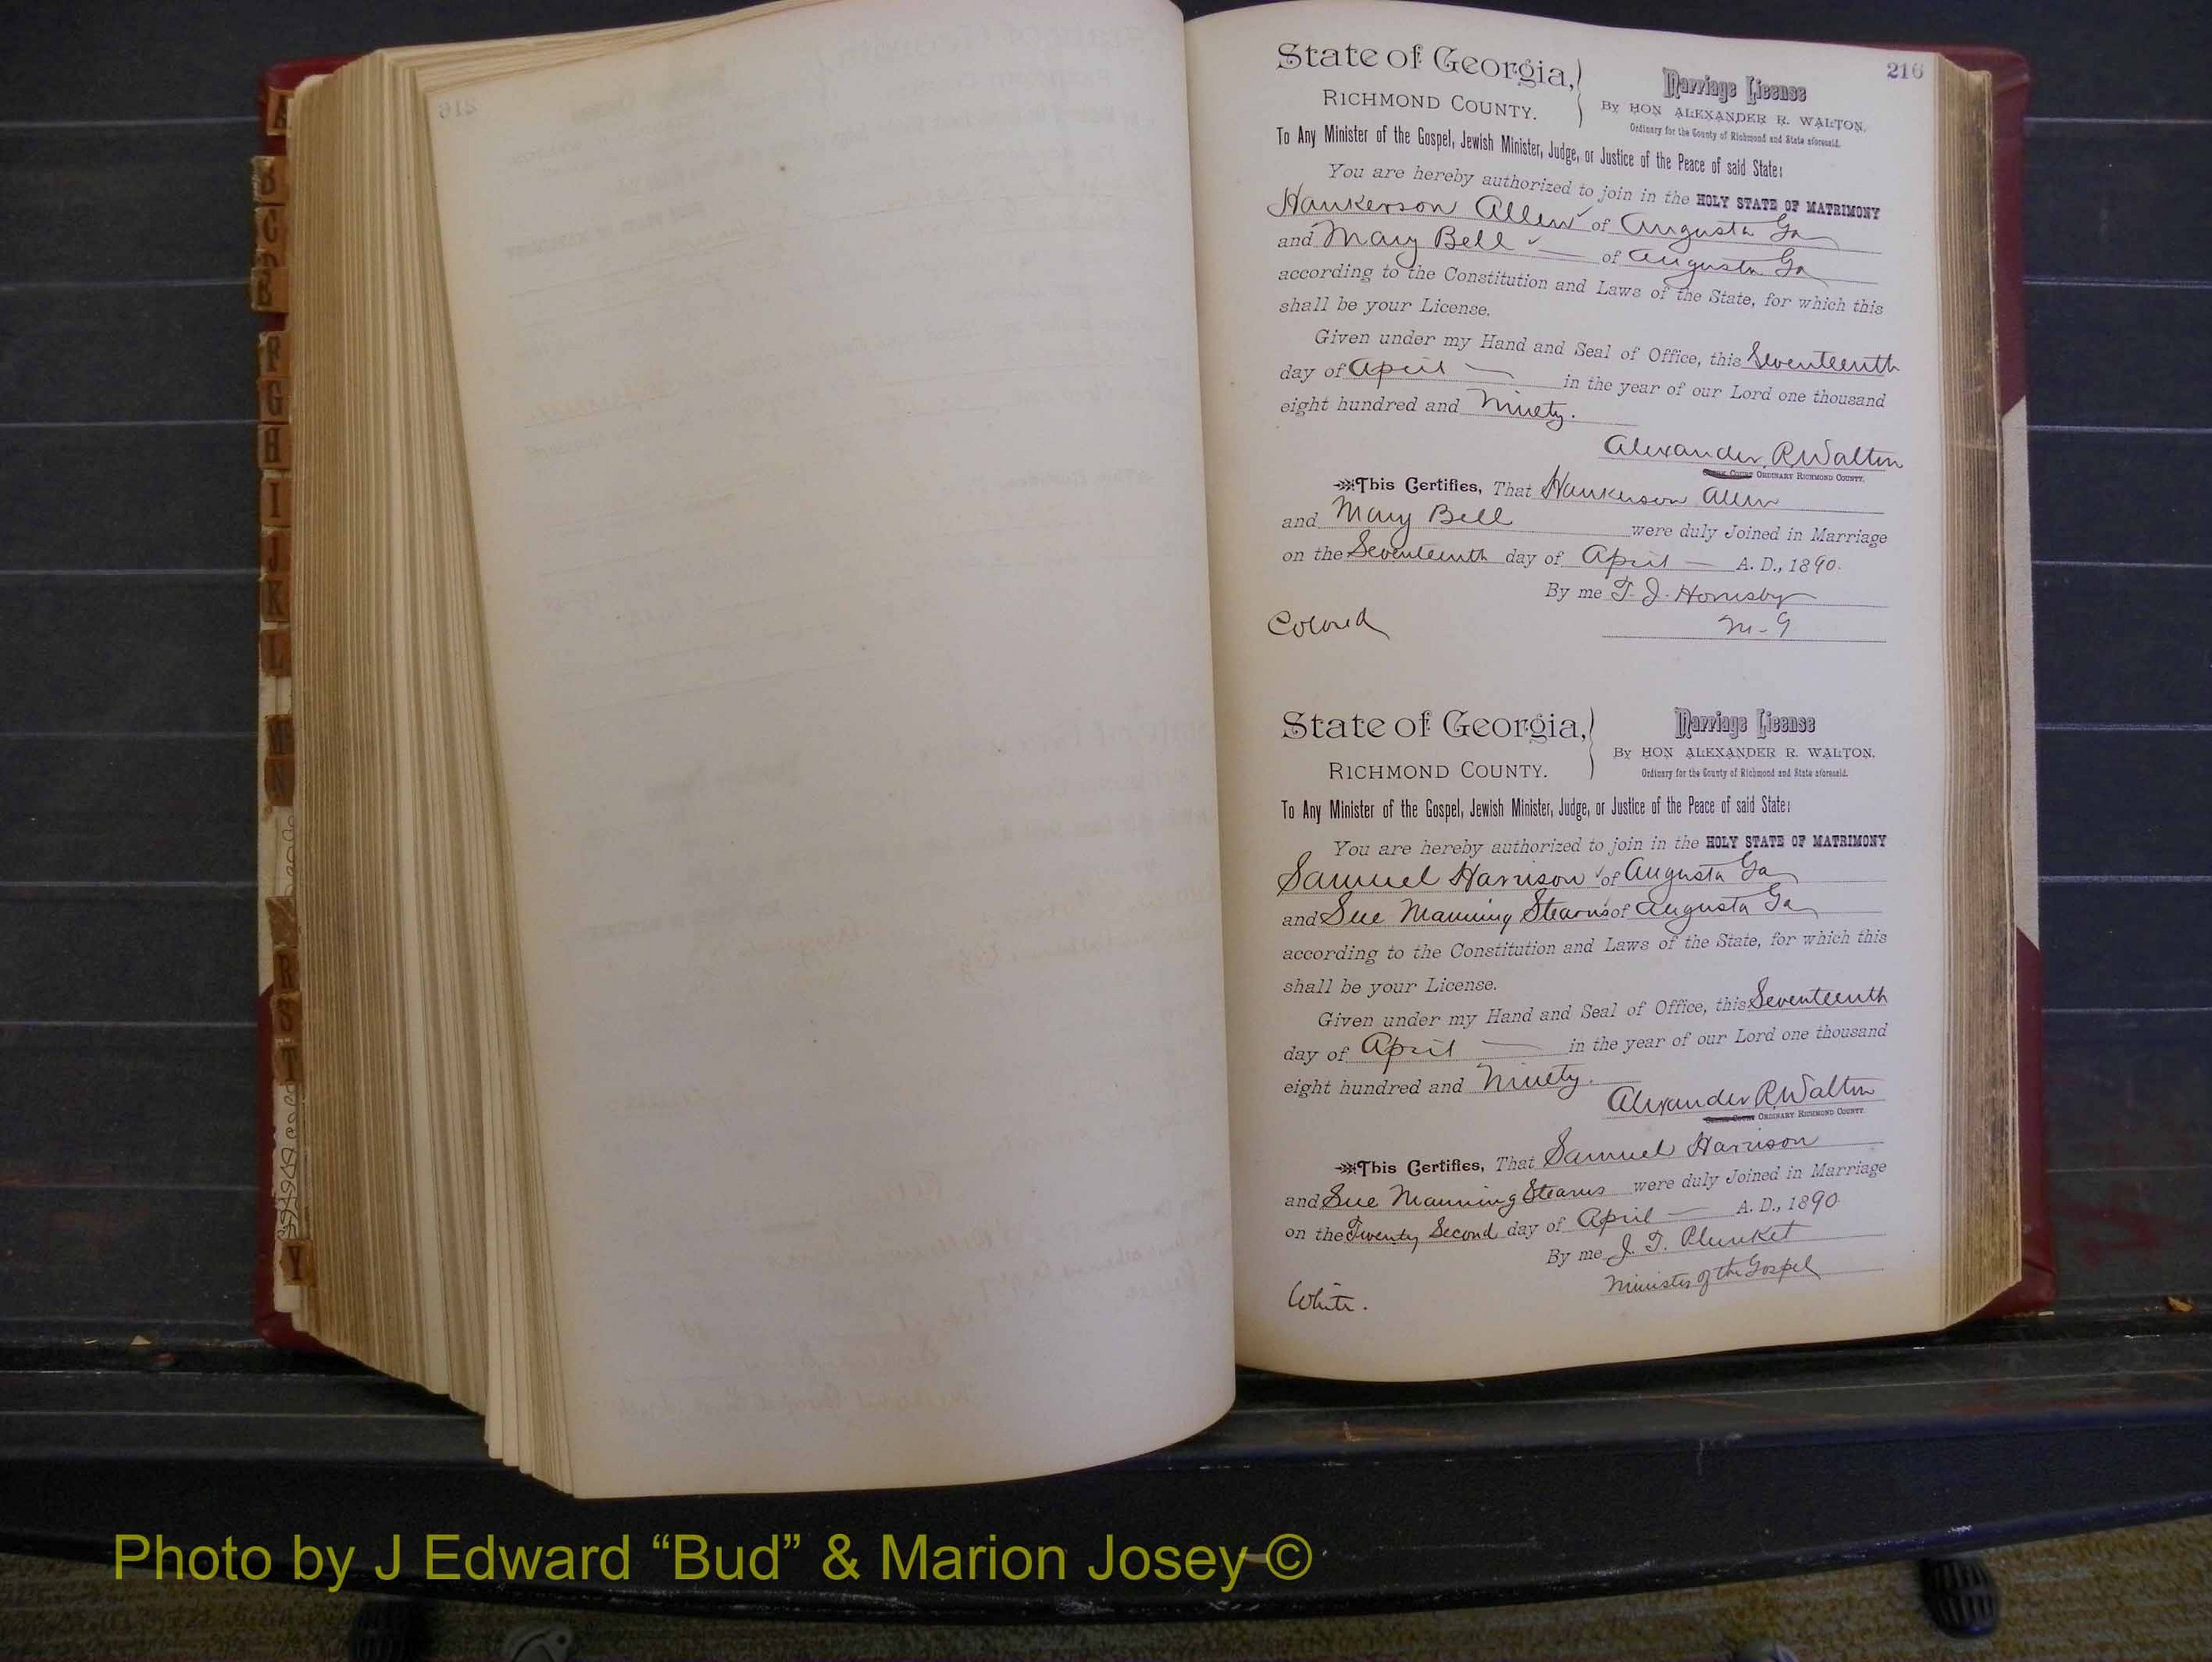 216
State of Georgia,
RICHMOND COUNTY.
Marriage License
By HON ALEXANDER R. WALTON,
Ordinary for the County of Richmond and State aforesaid.
To Any Minister of the Gospel, Jewish Minister, Judge, or Justice of the Peace of said State:
You are hereby authorized to join in the HOLY STATE OF MATRIMONY
Hankerson Allen of Augusta Ga
and Mary Bell of Augusta Ga
according to the Constitution and Laws of the State, for which this
shall be your License.
Given under my Hand and Seal of Office, this Seventeenth
day of April in the year of our Lord one thousand
eight hundred and Ninety.
Alexander R. Walton
ORDINARY RICHMOND COUNTY.
This Certifies, That Hankerson Allen
and Mary Bell were duly Joined in Marriage
on the Seventeenth day of April A. D., 1890.
By me T. J. Hornsby
M-G
Colored
State of Georgia,
RICHMOND COUNTY.
Marriage License
By HON ALEXANDER R. WALTON.
Ordinary for the County of Richmond and State aforesaid.
To Any Minister of the Gospel, Jewish Minister, Judge, or Justice of the Peace of said State:
You are hereby authorized to join in the HOLY STATE OF MATRIMONY
Samuel Harrison of Augusta Ga
and Sue Manning Stearns of Augusta Ga
according to the Constitution and Laws of the State, for which this
shall be your License.
Given under my Hand and Seal of Office, this Seventeenth
day of April in the year of our Lord one thousand
eight hundred and Ninety.
Alexander R. Walton
ORDINARY RICHMOND COUNTY.
This Certifies, That Samuel Harrison
and Sue Manning Stearns were duly Joined in Marriage
on the Twenty Second day of April A. D., 1890
By me J. T. Plunket
Minister of the Gospel
White.
A
B
C
D
E
F
G
H
I
J
K
L
N
R
S
T
Y
Photo by J Edward “Bud” & Marion Josey ©